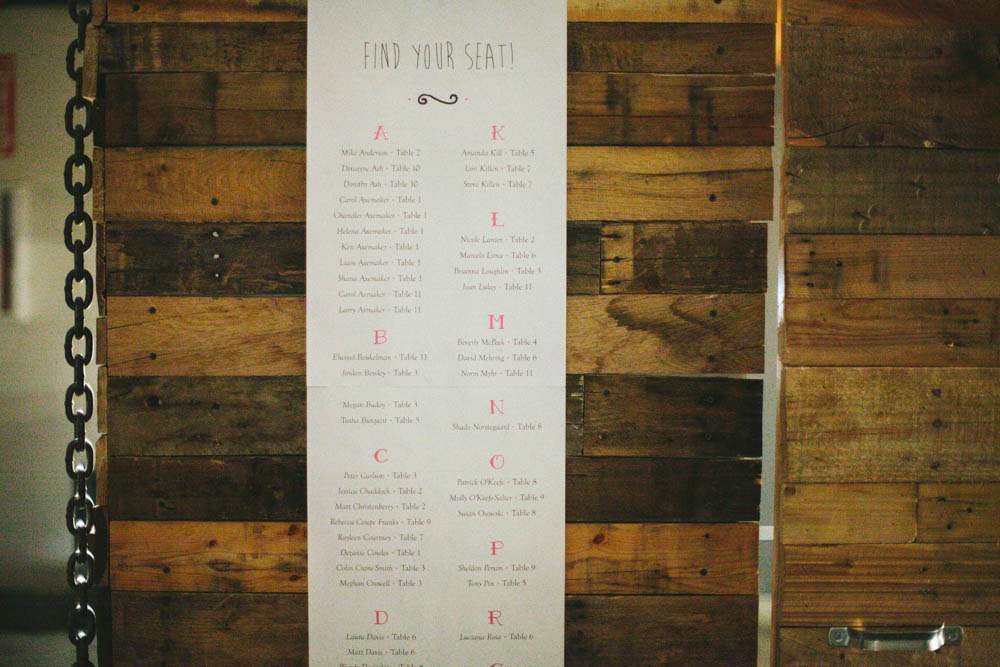 FIND YOUR SEAT!
A
Mike Anderson - Table 2
Dewayne Ash - Table 10
Dorothy Ash - Table 10
Carol Axemaker - Table 1
Chandler Axemaker - Table 1
Helena Axemaker - Table 1
Ken Axemaker - Table 1
Liam Axemaker - Table 1
Shana Axemaker - Table 1
Carol Axmaker - Table 11
Larry Axmaker - Table 11
B
Beukelman - Table 11
Jordan Bewley - Table 3
Megan Buday - Table 3
Tasha Burquist - Table 5
C
Peter Carlson - Table 3
Jessica Chaddock - Table 2
Matt Christenberry - Table 2
Rebecca Coupe Franks - Table 9
Rayleen Courtney - Table 7
Dezarae Cowles - Table 1
Colin Crane Smith - Table 3
Meghan Croswell - Table 3
D
Laura Davis - Table 6
Matt Davis - Table 6
K
Amanda Kill - Table 5
Lori Killen - Table 7
Steve Killen - Table 7
L
Nicole Lanter - Table 2
Marcelo Lima - Table 6
Brianna Loughlin - Table 3
Joan Luksy - Table 11
M
Beverly McPeek - Table 4
David Mehring - Table 6
Norm Myhr - Table 11
N
Shade Norstegaard - Table 8
O
Patrick O'Keefe - Table 8
Molly O'Keefe-Salter - Table 9
Susan Osowski - Table 8
P
Sheldon Person - Table 9
Tony Pin - Table 5
R
Luciana Rosa - Table 6